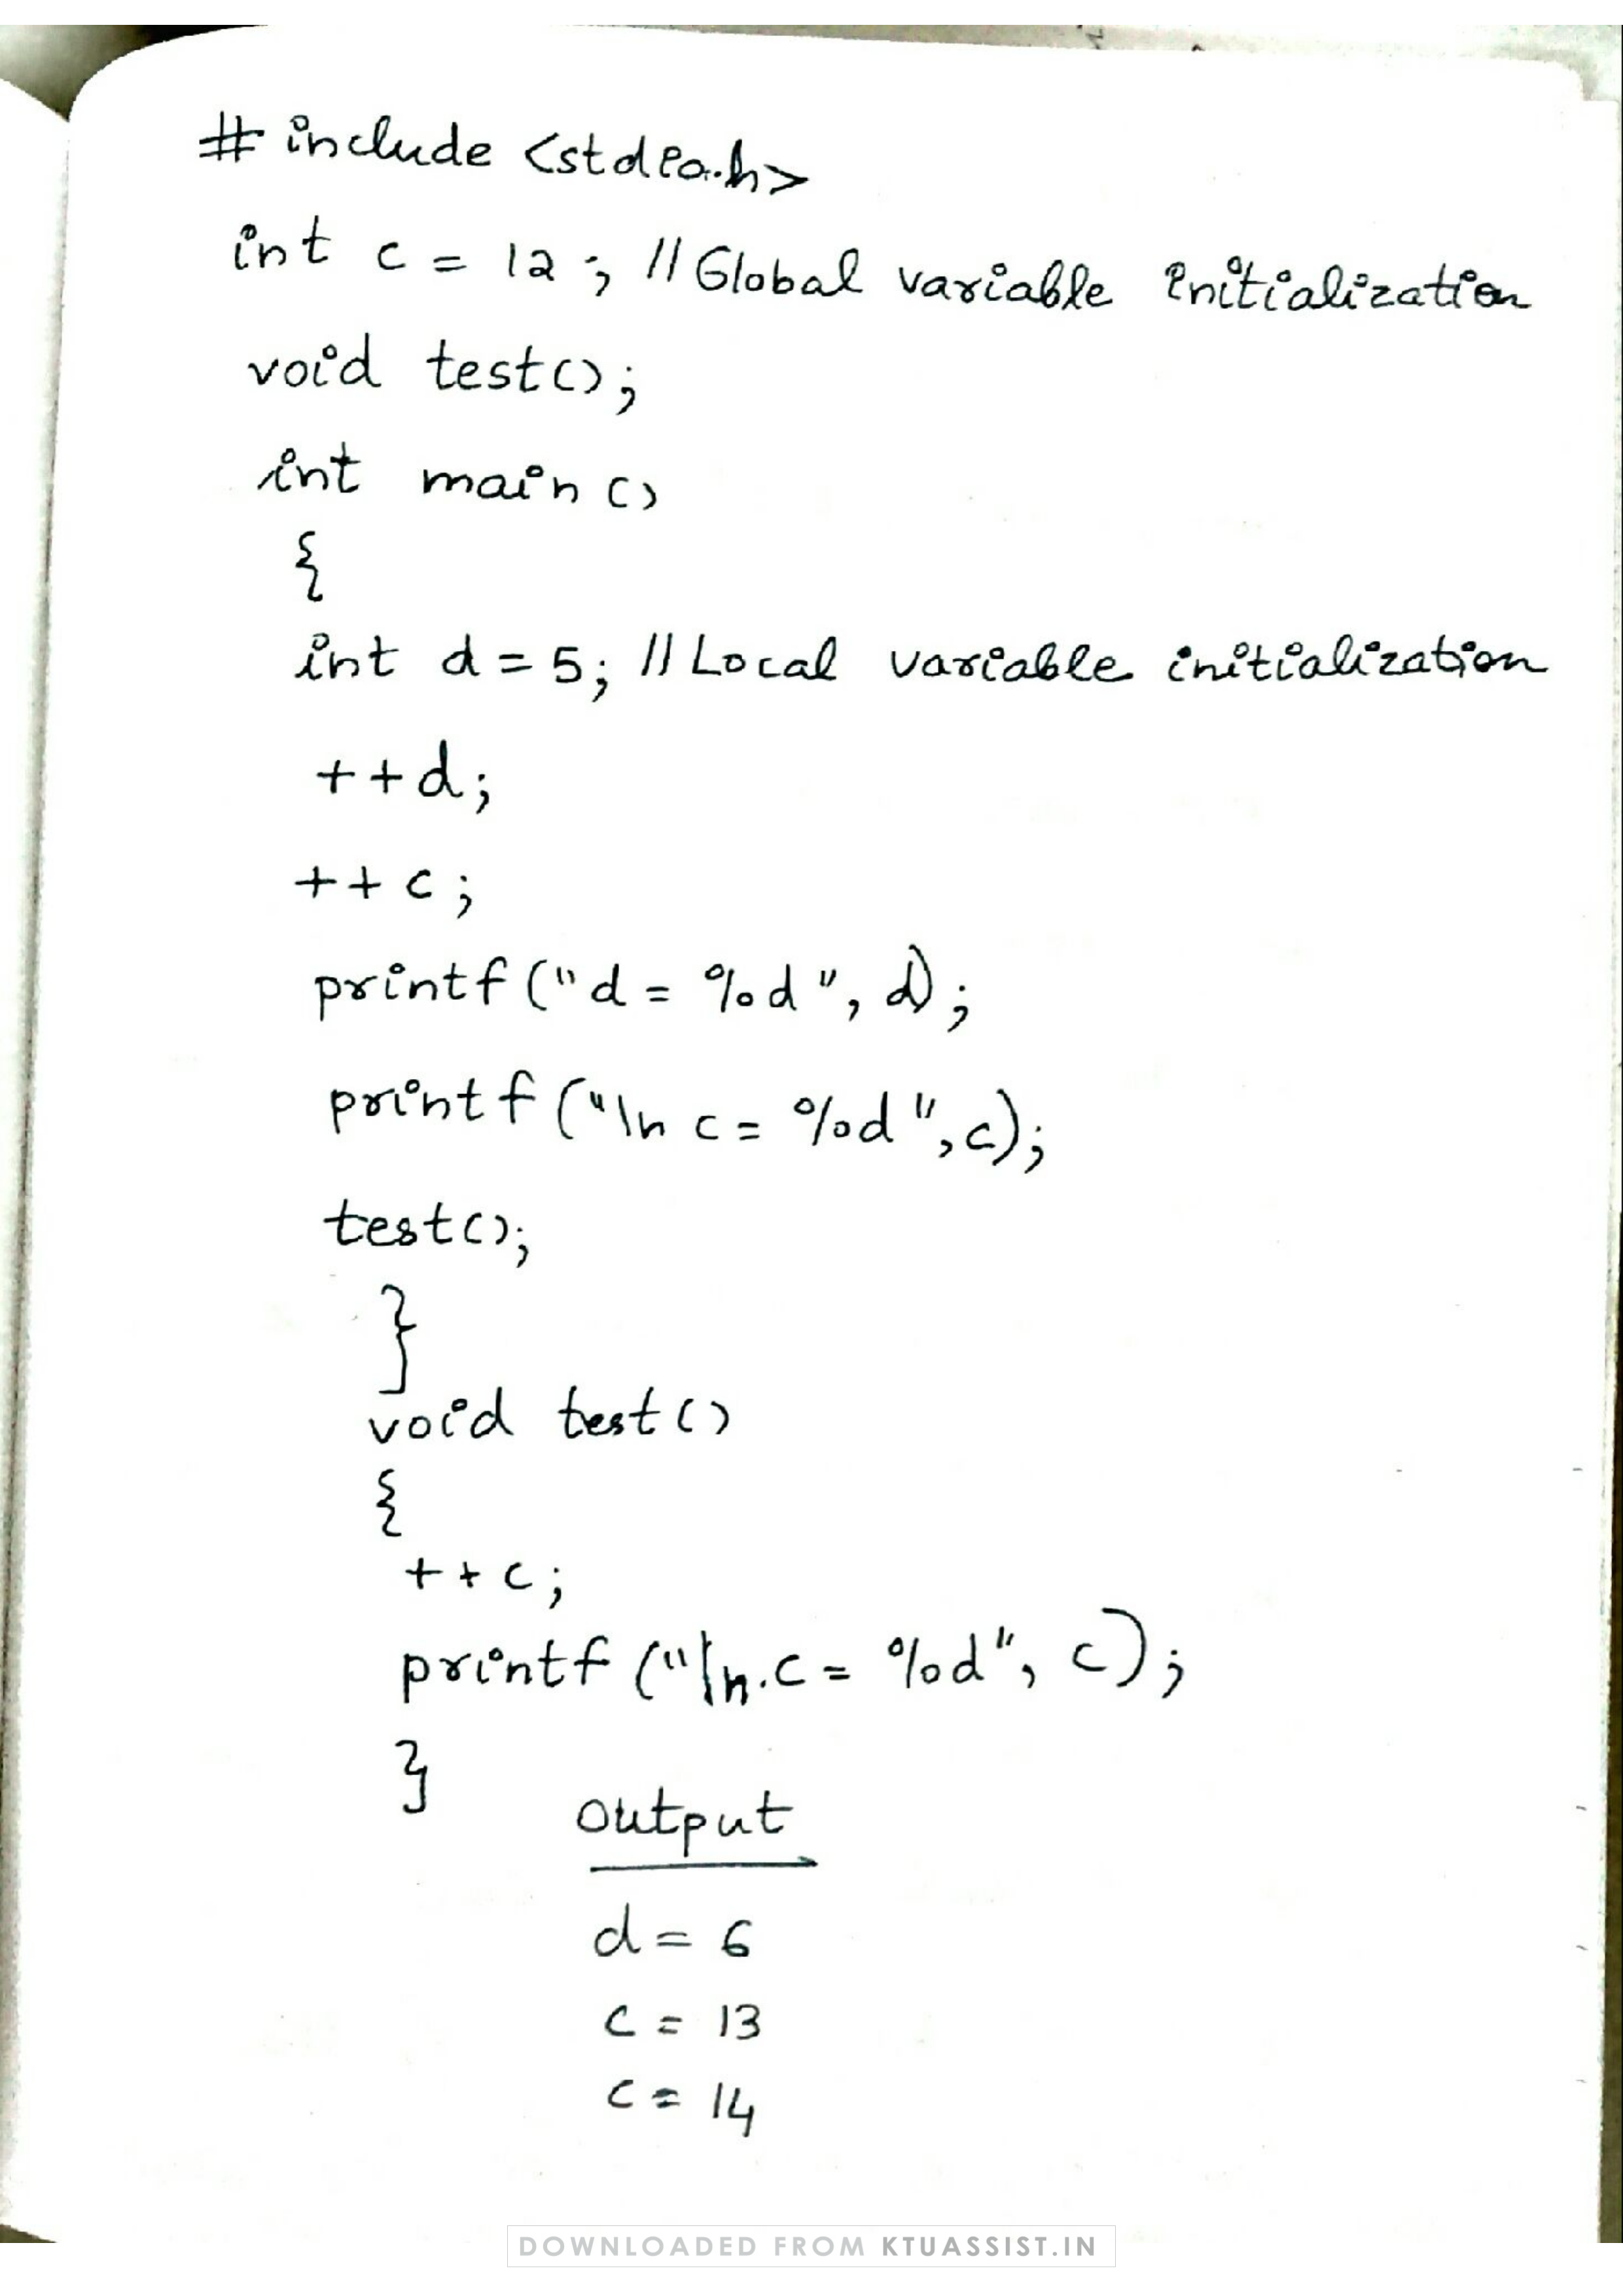 # include <stdio.h>
int c = 12; // Global variable initialization
void test();
int main()
{
int d = 5; // Local variable initialization
++d;
++c;
printf("d = %d", d);
printf("\n c = %d", c);
test();
}
void test()
{
++c;
printf("\n.c = %d", c);
}
output
d = 6
c = 13
c = 14
DOWNLOADED FROM KTUASSIST.IN